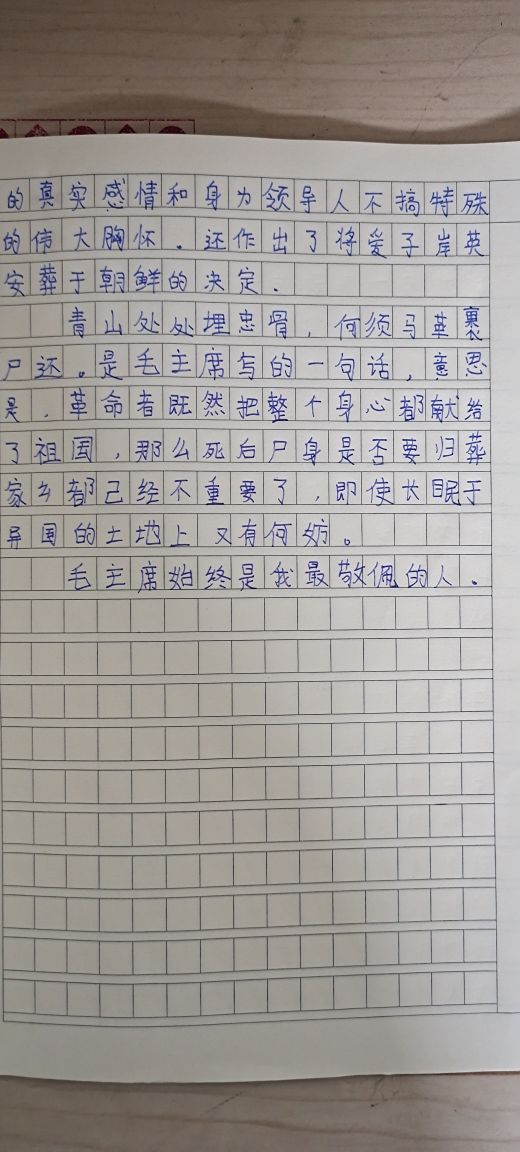 的真实感情和身为领导人不搞特殊
的伟大胸怀。还作出了将爱子岸英
安葬于朝鲜的决定.
青山处处埋忠骨，何须马革裹
尸还。是毛主席写的一句话，意思
是，革命者既然把整个身心都献给
了祖国，那么死后尸身是否要归葬
家乡都已经不重要了，即使长眠于
异国的土地上又有何妨。
毛主席始终是我最敬佩的人.